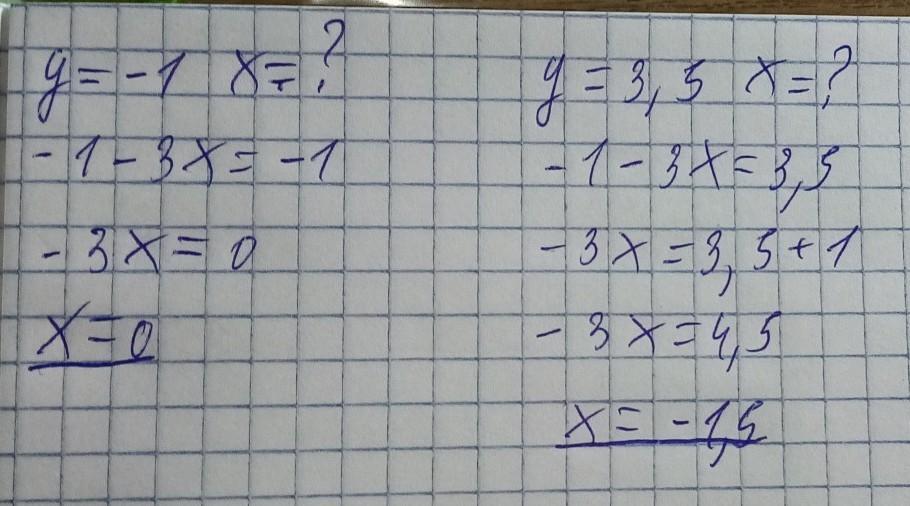 y = -1 x = ?
-1 - 3x = -1
-3x = 0
x = 0
y = 3,5 x = ?
-1 - 3x = 3,5
-3x = 3,5 + 1
-3x = 4,5
x = -1,5